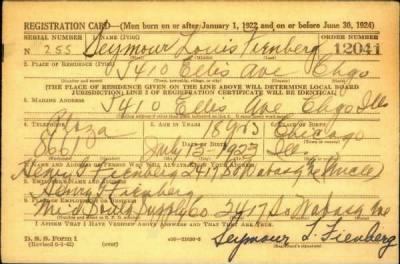 REGISTRATION CARD—(Men born on or after January 1, 1922 and on or before June 30, 1924)
SERIAL NUMBER 1. NAME (Print) ORDER NUMBER
N 255 Seymour Louis Fienberg 12041
2. PLACE OF RESIDENCE (Print)
5410 Ellis Ave Chgo
(Number and street) (Town, township, village, or city) (County) (State)
[THE PLACE OF RESIDENCE GIVEN ON THE LINE ABOVE WILL DETERMINE LOCAL BOARD
JURISDICTION; LINE 2 OF REGISTRATION CERTIFICATE WILL BE IDENTICAL]
3. MAILING ADDRESS
5410 Ellis Ave Chgo Ills
4. TELEPHONE 5. AGE IN YEARS 6. PLACE OF BIRTH
Plaza 18 yrs Chicago
DATE OF BIRTH
8661 July 13 - 1923 Ill
7. NAME AND ADDRESS OF PERSON WHO WILL ALWAYS KNOW YOUR ADDRESS
Henry S Fienberg 2417 So Wabash Ave (Uncle)
8. EMPLOYER'S NAME AND ADDRESS
Henry Fienberg
9. PLACE OF EMPLOYMENT OR BUSINESS
Supply Co 2417 So Wabash Ave
I AFFIRM THAT I HAVE VERIFIED ABOVE ANSWERS AND THAT THEY ARE TRUE.
D. S. S. Form 1
(Revised 6-9-42)
Seymour L. Fienberg